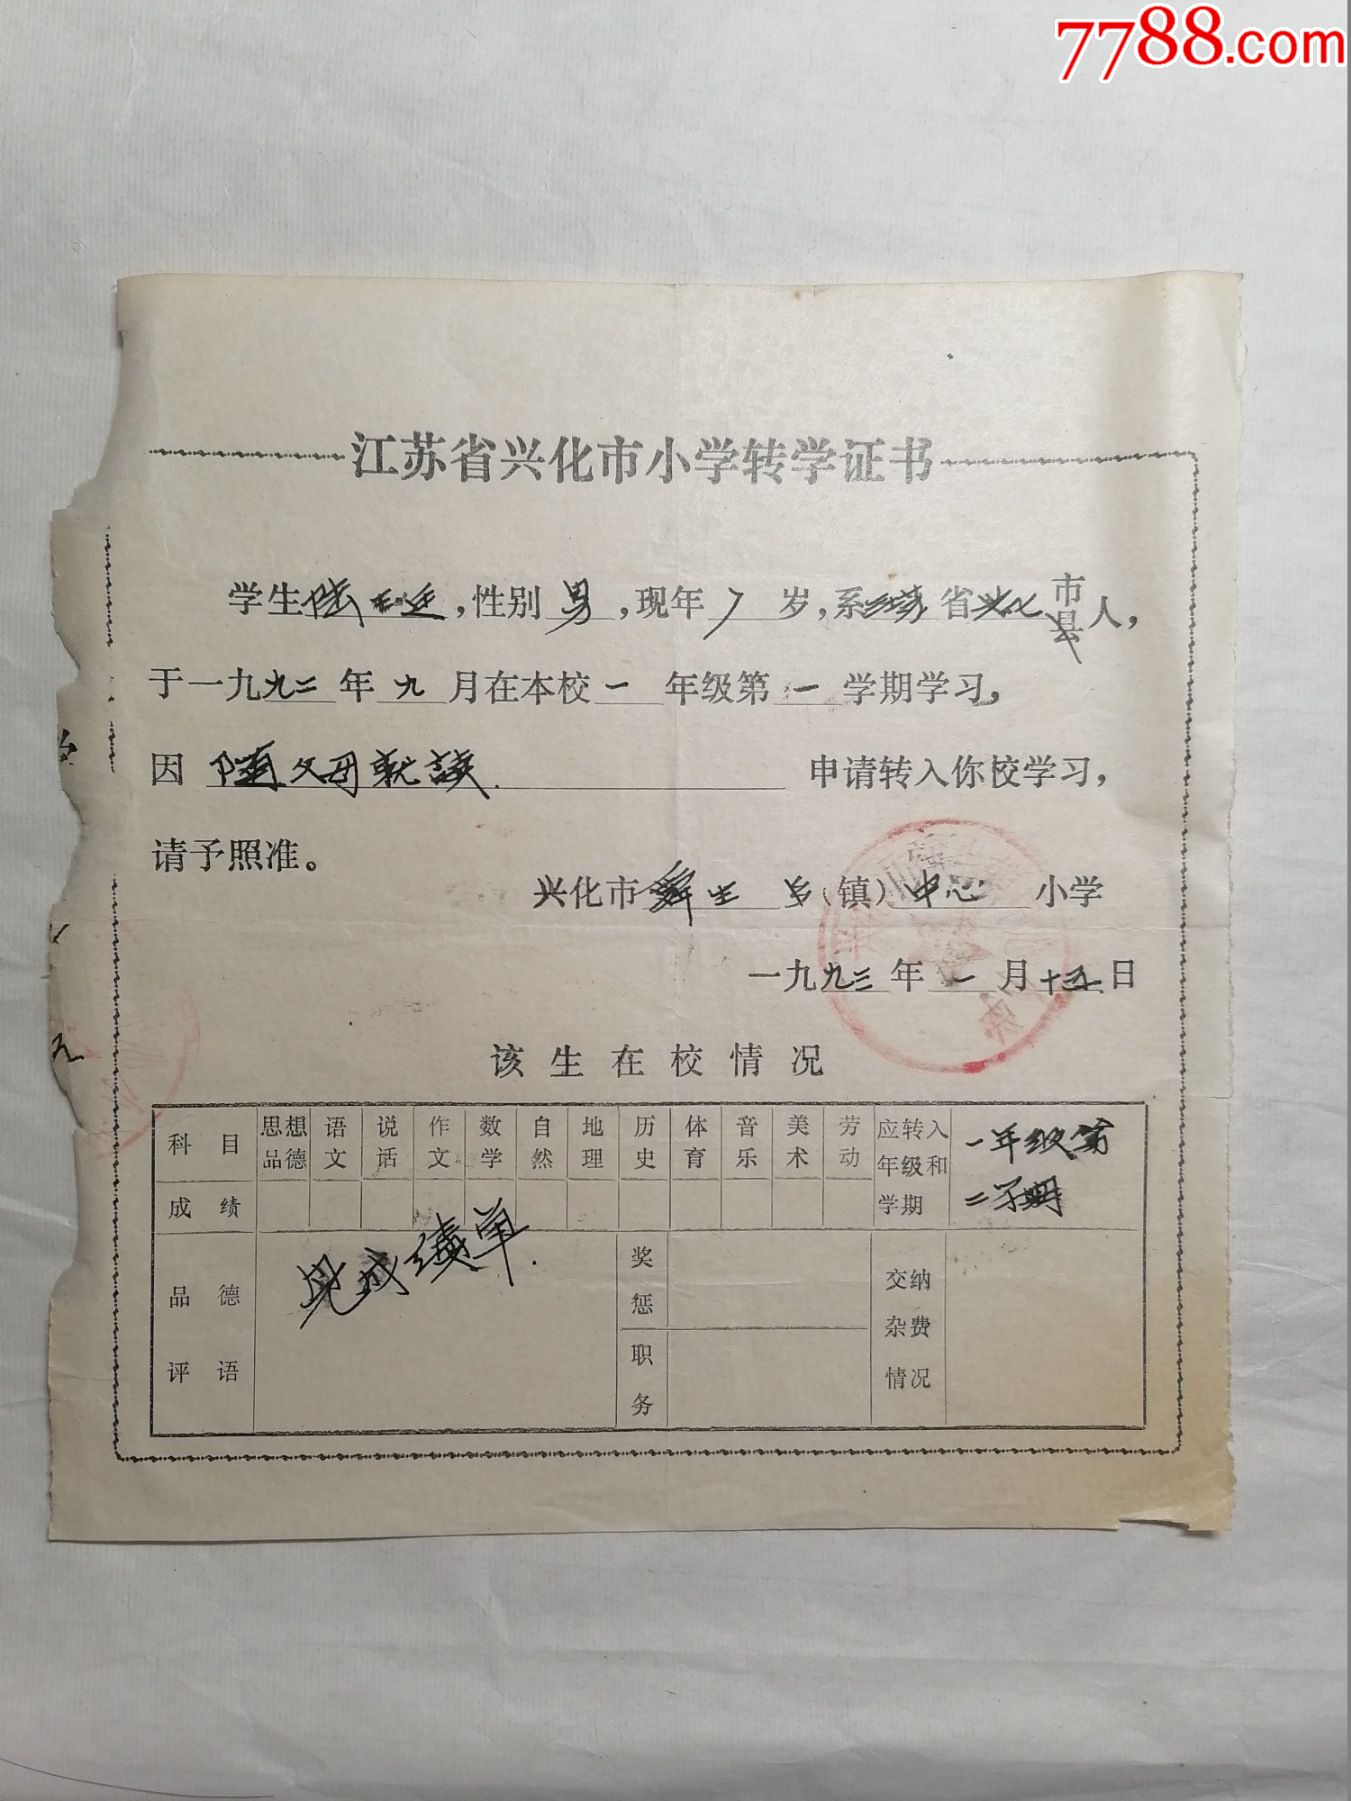 7788.com
江苏省兴化市小学转学证书
学生陆，性别男，现年7岁，系江苏省兴化市县人，
于一九九二年九月在本校一年级第一学期学习，
因随父母就读.申请转入你校学习，
请予照准。
兴化市舜生乡(镇)中心小学
一九九三年一月十五日
该生在校情况
科目 思想品德 语文 说话 作文 数学 自然 地理 历史 体育 音乐 美术 劳动 应转入年级和学期 一年级第二学期
成绩
见成绩单.
品德评语 奖惩 职务 交纳杂费情况